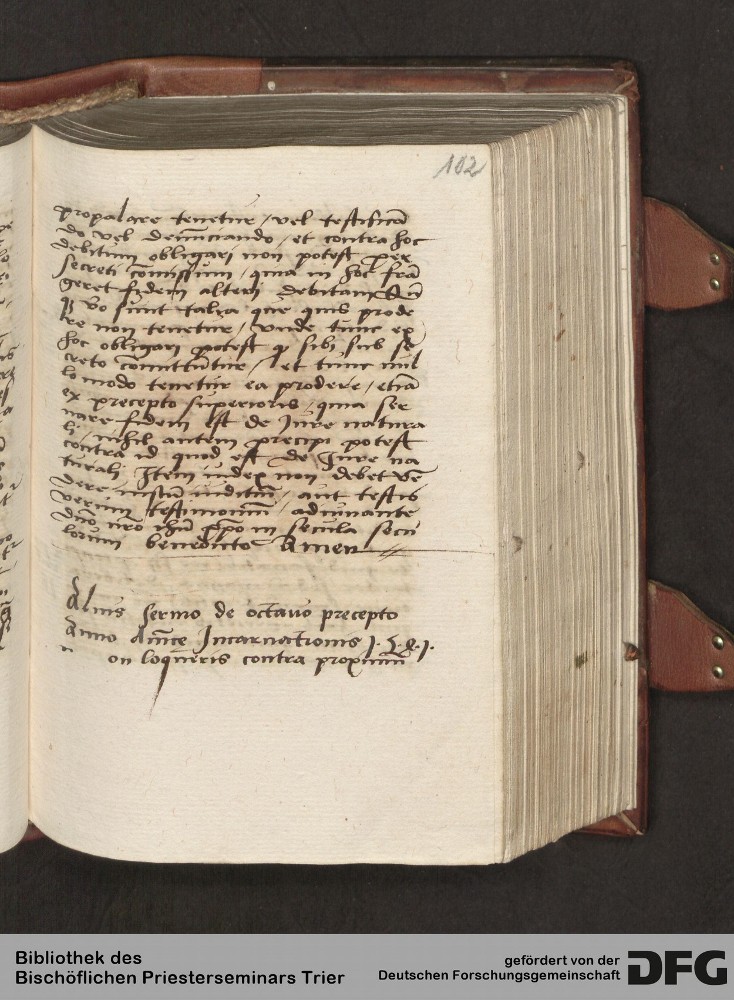 102
propalare tenetur / vel testifican
do vel denunciando / et contra hoc
debitum obligari non potest per
secreti comissum / quia in hoc frā
geret fidem alteri debitam
vo sunt talia que quis prode
re non tenetur / vnde tunc ex
hoc obligari potest q sibi sub se
creto comittūtur / et tunc nul
lo modo tenetur ea prodere / etiā
ex precepto superioris / quia ser
uare fidem est de Iure natura
li / nihil autem precipi potest
contra id quod est de Iure na
turali Item iudex non debet vē
dere iustū iuditiū / aut testis
verum testimoniū / adiuuante
dn̄o nr̄o ihū xp̄o in secula secu
lorum benedicto Amen
Alius sermo de octauo precepto
Anno Incarnationis
n on loqueris contra proximū
Bibliothek des
Bischöflichen Priesterseminars Trier
gefördert von der
Deutschen Forschungsgemeinschaft
DFG